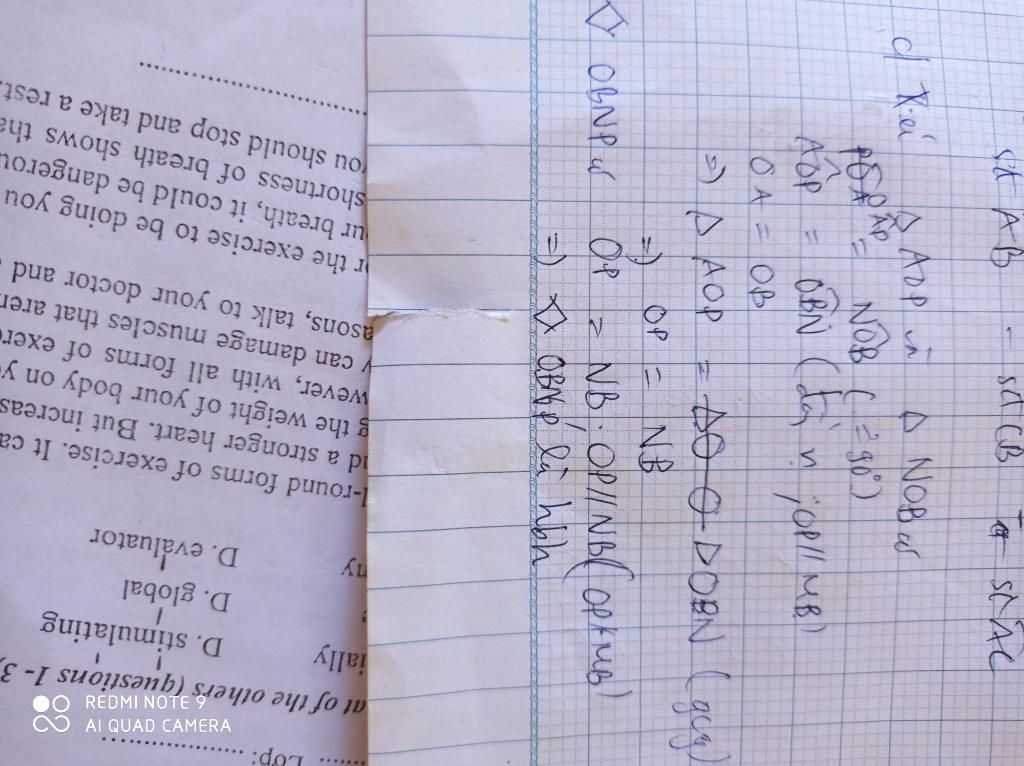 sđ AB - sđ CB - sđ AC
c) Xét Δ AOP và Δ NOB có
= NOB ( = 90°)
AOP = OBN ( đ/vị , OP//MB)
OA = OB
=> Δ AOP = Δ OBN ( gcg )
=> OP = NB
◇ OBNP có OP = NB. OP//NB( OP//MB)
=> ◇ OBNP là hbh
Lớp:
at of the others (questions 1- 3
ially D. stimulating
D. global
ny D. evaluator
l-round forms of exercise. It ca
nd a stronger heart. But increas
g the weight of your body on yo
wever, with all forms of exerc
y can damage muscles that aren
asons, talk to your doctor and
r the exercise to be doing you
ur breath, it could be dangerou
shortness of breath shows tha
you should stop and take a rest.
REDMI NOTE 9
AI QUAD CAMERA